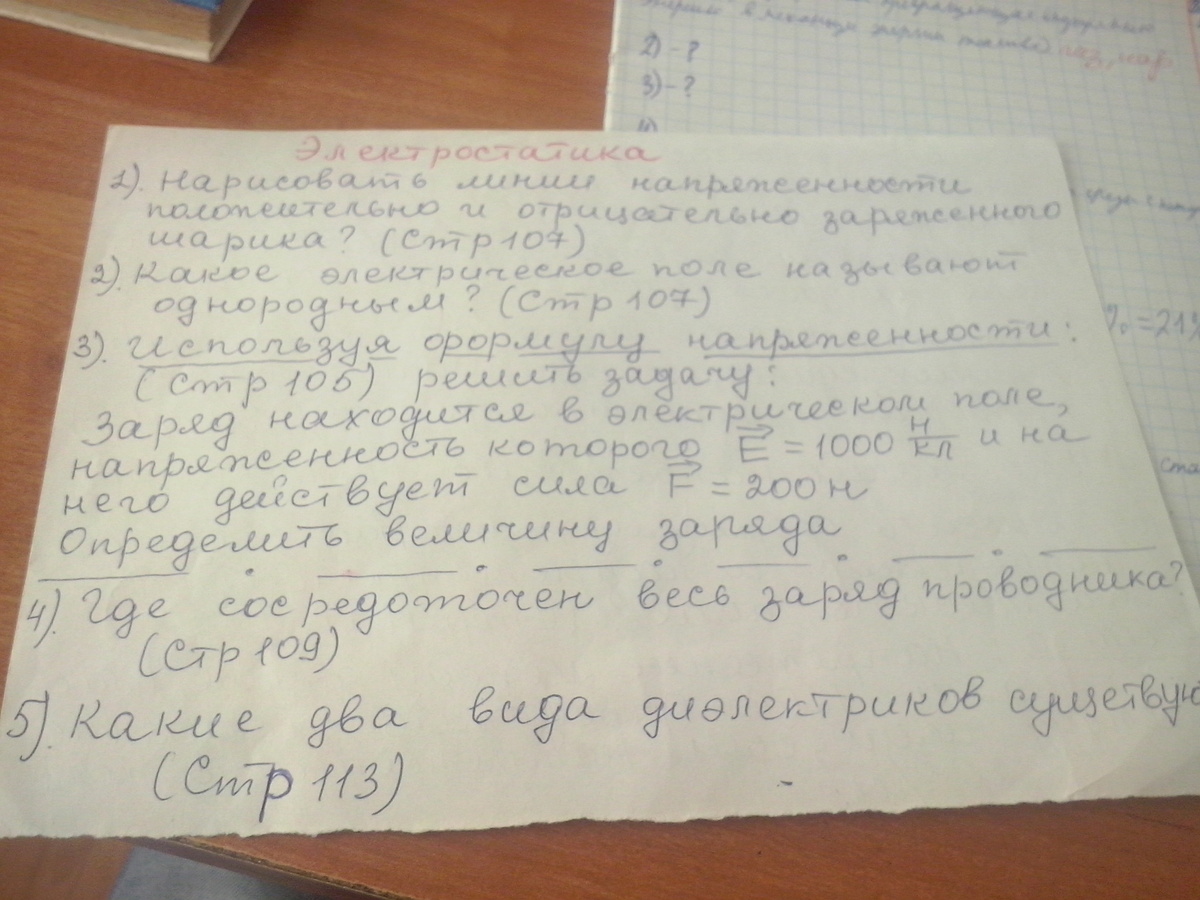 2) - ?
3) - ?
Электростатика
1). Нарисовать линии напряженности
положительно и отрицательно заряженного
шарика? (Стр 107)
2). Какое электрическое поле называют
однородным? (Стр 107)
3). Используя формулу напряженности:
(Стр 105) решить задачу:
Заряд находится в электрическом поле,
напряженность которого E = 1000 Н/Кл и на
него действует сила F = 200 н
Определить величину заряда
4). Где сосредоточен весь заряд проводника?
(Стр 109)
5). Какие два вида диэлектриков существую
(Стр 113)